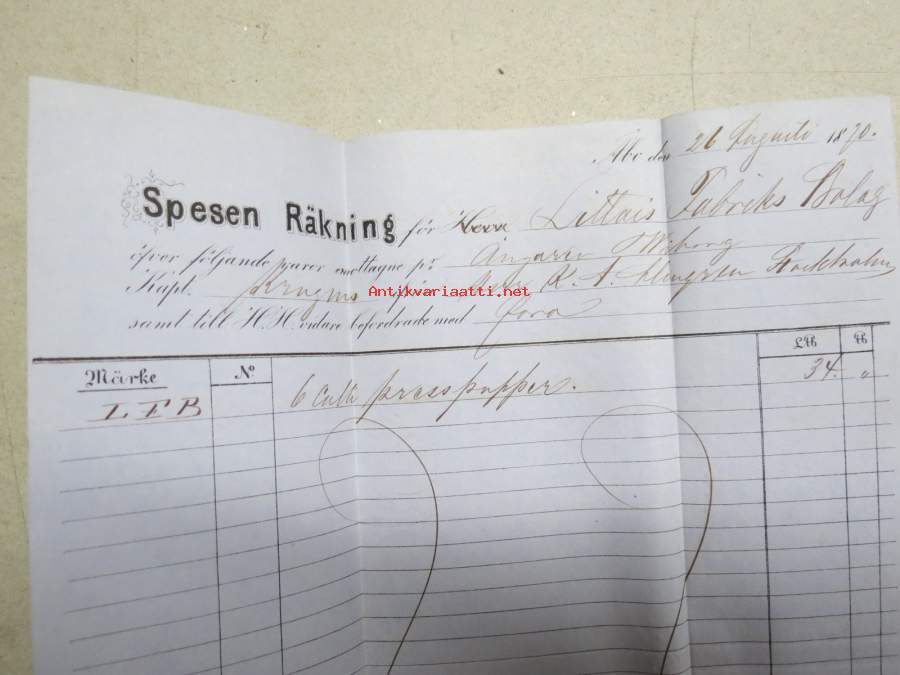 Åbo den 26 Augusti 1870.
Spesen Räkning för Herr Littois Fabriks Bolag
öfver följande varor emottagne pr Ångaren Wiborg
Kapt. från Stockholm
samt till H. H. vidare befordrade med fora
Antikvariaatti.net
Märke No. L℔ ℔
L F B 6 Colli presspapper. 34. "